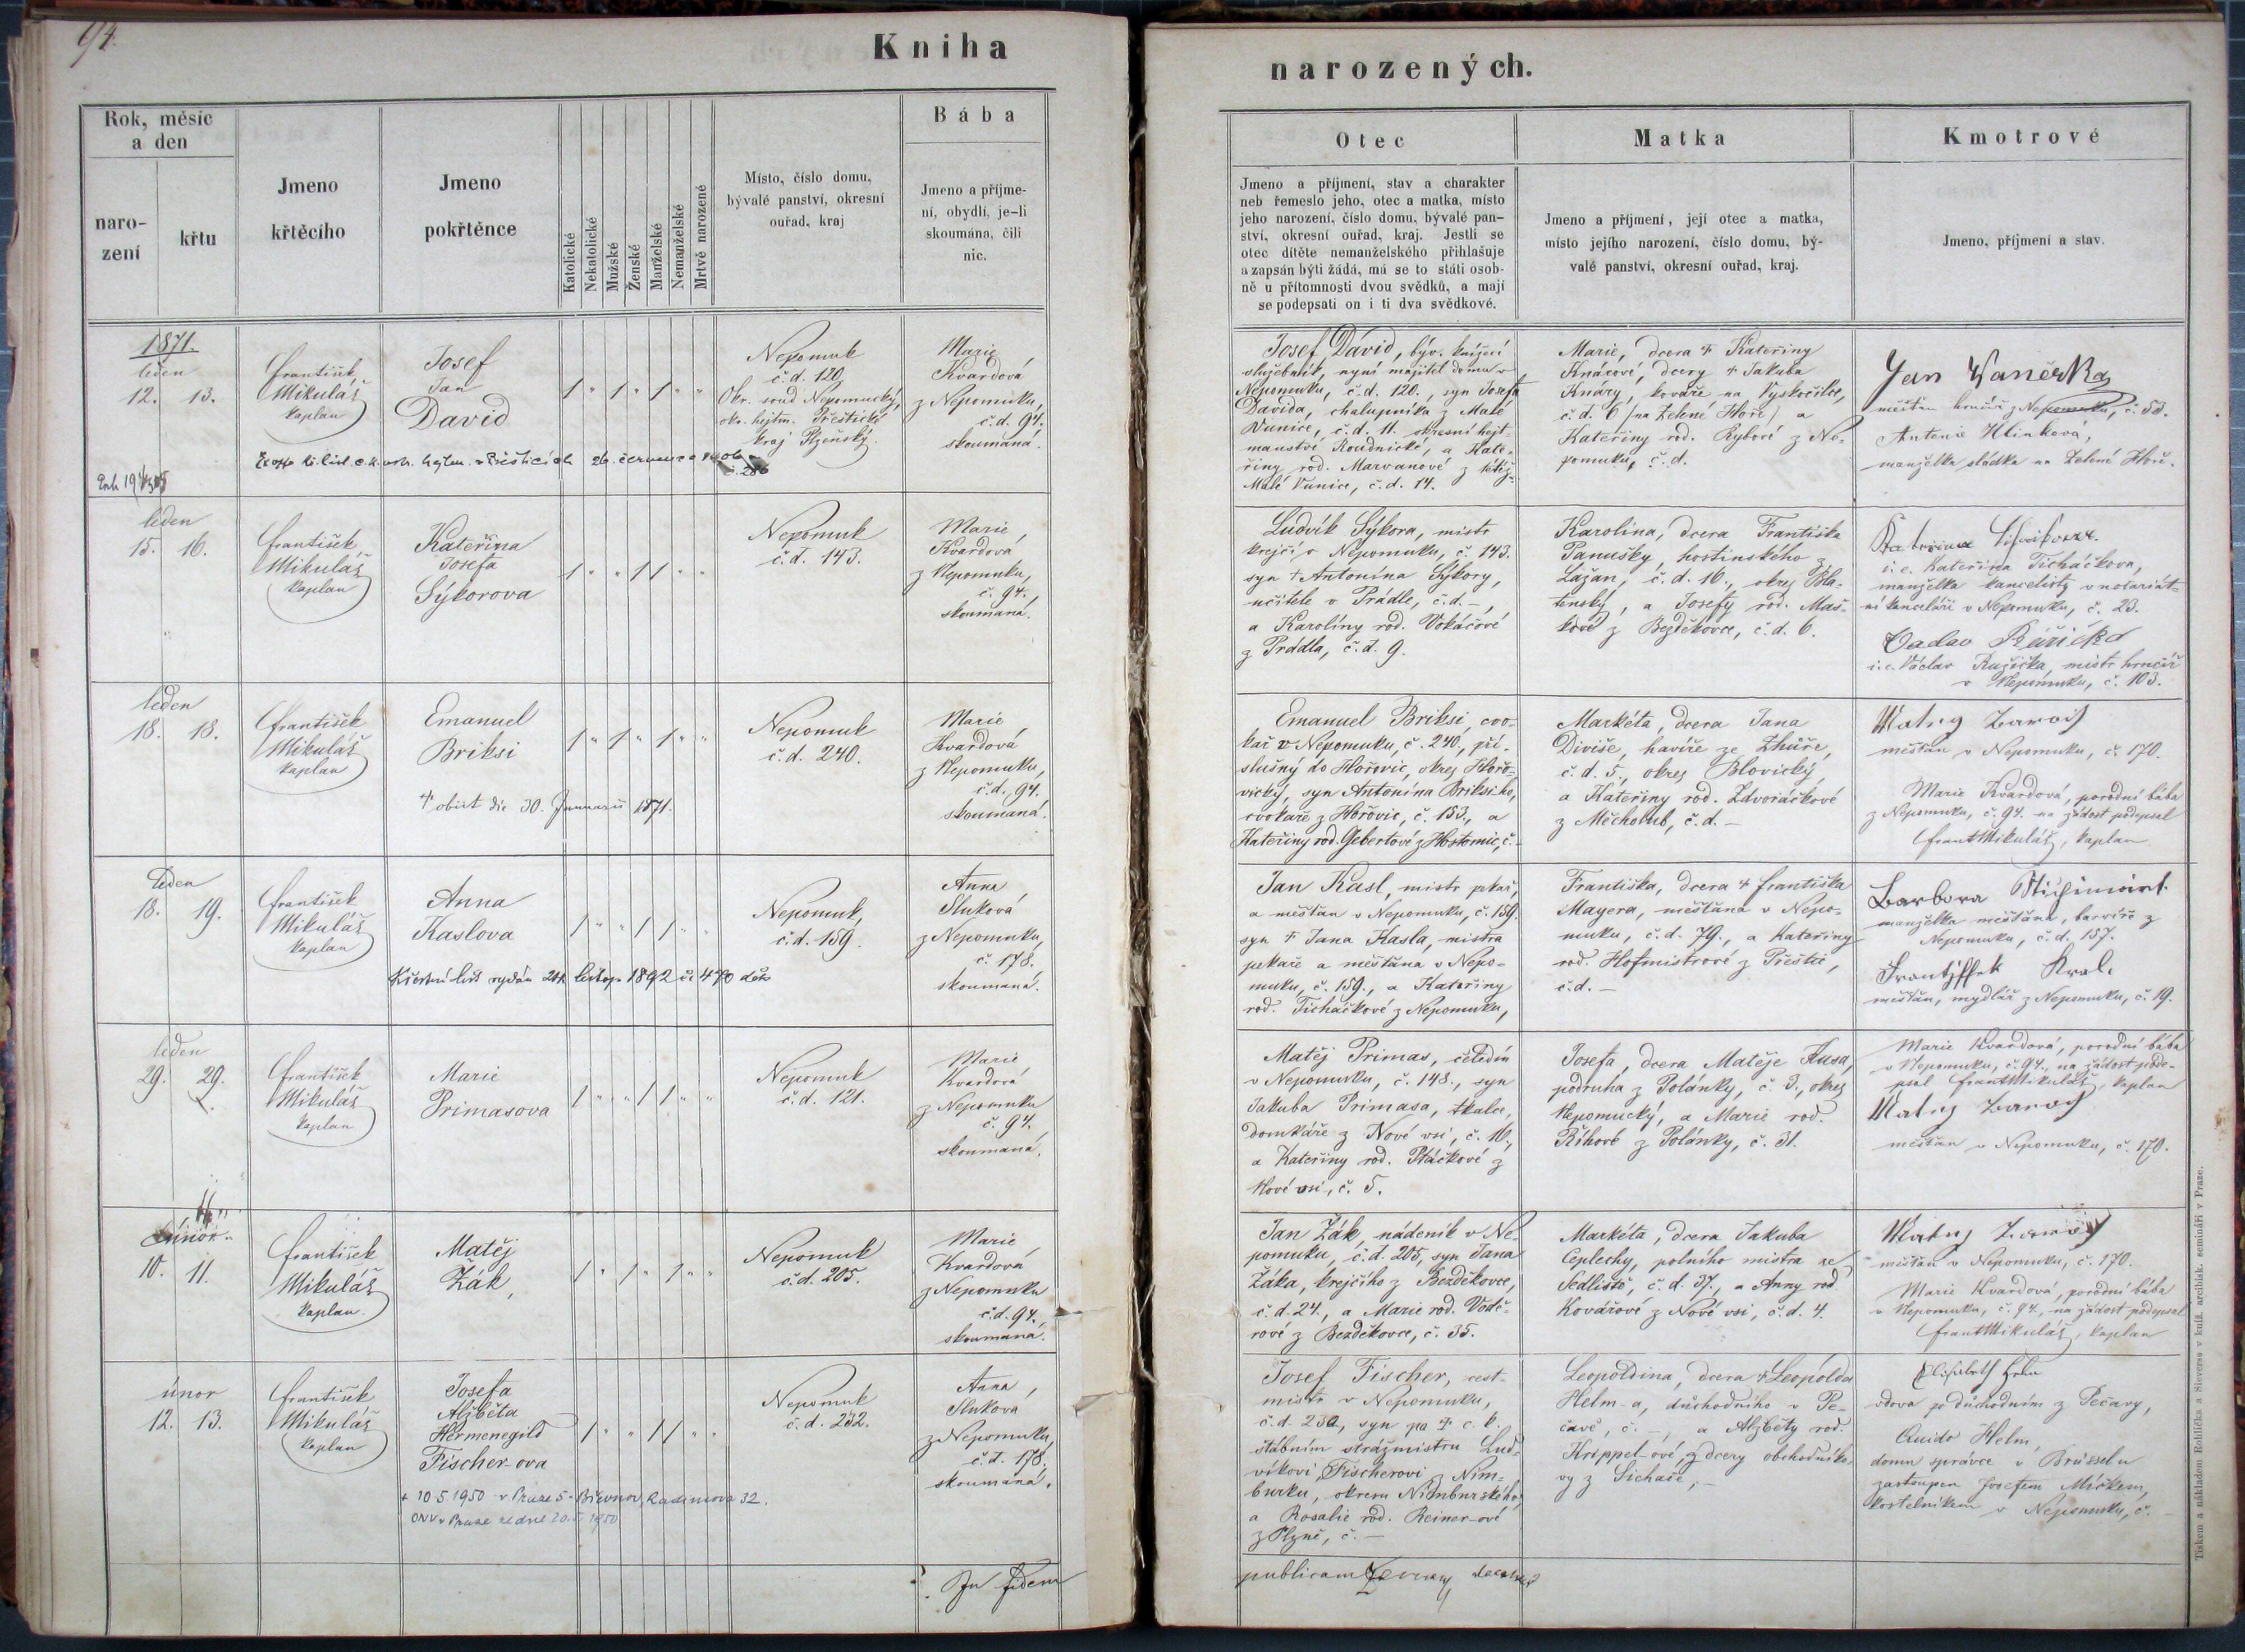 94.
Kniha
narozených.
Rok, měsíc
a den
naro-
zení
křtu
Jmeno
křtěcího
Jmeno
pokřtěnce
Katolické
Nekatolické
Mužské
Ženské
Manželské
Nemanželské
Mrtvě narozené
Místo, číslo domu,
bývalé panství, okresní
ouřad, kraj
Bába
Jmeno a příjme-
ní, obydlí, je-li
skoumána, čili
nic.
Otec
Jmeno a příjmení, stav a charakter
neb řemeslo jeho, otec a matka, místo
jeho narození, číslo domu, bývalé pan-
ství, okresní ouřad, kraj. Jestli se
otec dítěte nemanželského přihlašuje
a zapsán býti žádá, má se to státi osob-
ně u přítomnosti dvou svědků, a mají
se podepsati on i ti dva svědkové.
Matka
Jmeno a příjmení, její otec a matka,
místo jejího narození, číslo domu, bý-
valé panství, okresní ouřad, kraj.
Kmotrové
Jmeno, příjmení a stav.
1871.
leden
12. 13.
František
Mikuláš
kaplan
Josef
Jan
David
Nepomuk
č. d. 120,
Okr. soud Nepomucký,
okr. hejtm. Přeštické
kraj Plzeňský.
Marie
Kvardová
z Nepomuku,
č. d. 94.
skoumaná.
Josef David, býv. knížecí
služebník, nyní majitel domu v
Nepomuku, č. d. 120., syn Josefa
Davida, chalupníka z Malé
Vunice, č. d. 11. okresní hejt-
manství Roudnické, a Kate-
řiny rod. Marvanové z též
Malé Vunice, č. d. 14.
Marie, dcera † Kateřiny
Knárové, dcery † Jakuba
Knáry, kováře na Vyskočilce,
č. d. 6 (na Zelené Hoře) a
Kateřiny rod. Rybové z Ne-
pomuku, č. d.
Jan Waněrka
měšťan hrnčíř z Nepomuku, č. 53.
Antonie Hlinková,
manželka sládka na Zelené Hoře.
leden
15. 16.
František
Mikuláš
kaplan
Kateřina
Josefa
Sýkorova
Nepomuk
č. d. 143.
Marie,
Kvardová
z Nepomuku,
č. 94.,
skoumaná.
Ludvík Sýkora, mistr
krejčí v Nepomuku, č. 143.
syn † Antonína Sýkory,
učitele v Prádle, č. d. -,
a Karolíny rod. Vokáčové
z Prádla, č. d. 9.
Karolina, dcera Františka
Panušky, hostinského z
Lažan, č. d. 16., okres Bla-
tenský, a Josefy rod. Maš-
kové z Bezděkovce, č. d. 6.
i. e. Kateřina Ticháčkova,
manželka kancelisty v notariát-
ní kanceláři v Nepomuku, č. 23.
i. e. Václav Ružička, mistr hrnčíř
v Nepomuku, č. 103.
leden
18. 18.
František
Mikuláš
kaplan
Emanuel
Briksi
† obiit die 30. Januarii 1871.
Nepomuk
č. d. 240.
Marie
Kvardová
z Nepomuku,
č. d. 94.
skoumaná.
Emanuel Briksi, cvo-
kař v Nepomuku, č. 240., pří-
slušný do Hořovic, okres Hořo-
vický, syn Antonína Briksiho,
cvokaře z Hořovic, č. 153., a
Kateřiny rod. Gebertové z Hostomic, č. -
Markéta, dcera Jana
Diviše, havíře ze Zhůře,
č. d. 5., okres Blovický,
a Kateřiny rod. Zdvoráčkové
z Měcholub, č. d. -
měšťan v Nepomuku, č. 170.
Marie Kvardová, porodní bába
z Nepomuku, č. 94. na žádost podepsal
Frant Mikuláš, kaplan
leden
18. 19.
František
Mikuláš
kaplan
Anna
Kaslova
Křestní list vydán 24. listop. 1892 či 470
Nepomuk,
č. d. 159.
Anna
Slukova
z Nepomuku,
č. 178.
skoumaná.
Jan Kasl, mistr pekař,
a měšťan v Nepomuku, č. 159.
syn † Jana Kasla, mistra
pekaře a měšťana v Nepo-
muku, č. 159., a Kateřiny
rod. Ticháčkové z Nepomuku,
Františka, dcera † Františka
Mayera, měšťana v Nepo-
muku, č. d. 79., a Kateřiny
rod. Hofmistrové z Přeštic,
č. d. -
Barbora
manželka měšťana, barvíře z
Nepomuku, č. d. 157.
Frantissek Kral.
měšťan, mydlář z Nepomuku, č. 19.
leden
29. 29.
František
Mikuláš
kaplan
Marie
Primasova
Nepomuk
č. d. 121.
Marie
Kvardová
z Nepomuku
č. 94.,
skoumaná.
Matěj Primas, čeledín
v Nepomuku, č. 148., syn
Jakuba Primasa, tkalce,
domkáře z Nové vsi, č. 16.,
a Kateřiny rod. Ptáčkové z
Nové vsi, č. 5.
Josefa, dcera Matěje Husa,
podruha z Polánky, č. 3., okres
Nepomucký, a Marie rod.
Říhové z Polánky, č. 31.
Marie Kvardová, porodní bába
v Nepomuku, č. 94., na žádost pode-
psal Frant Mikuláš, kaplan
měšťan v Nepomuku, č. 170.
únor
10. 11.
František
Mikuláš
kaplan.
Matěj
Žák,
Nepomuk
č. d. 205.
Marie,
Kvardová
z Nepomuku
č. d. 94.,
skoumaná.
Jan Žák, nádeník v Ne-
pomuku, č. d. 205, syn Jana
Žáka, krejčího z Bezděkovce,
č. d. 24., a Marie rod. Vodě-
rové z Bezděkovce, č. 35.
Markéta, dcera Jakuba
Ceplechy, polního mistra ze
Sedliště, č. d. 37., a Anny rod.
Kovářové z Nové vsi, č. d. 4.
měšťan v Nepomuku, č. 170.
Marie Kvardová, porodní bába
v Nepomuku, č. 94., na žádost podepsal
Frant Mikuláš, kaplan
únor
12. 13.
František
Mikuláš
kaplan
Josefa
Alžběta
Hermenegild
Fischer-ova
+ 10.5.1950 v Praze 5-Břevnov, Radimova 32.
ONV v Praze ze dne 20.5.1950
Nepomuk
č. d. 232.
Anna,
Slukova
z Nepomuku,
č. d. 178.
skoumaná.
Josef Fischer, cest-
mistr v Nepomuku,
č. d. 232, syn po † c. k.
štábním strážmistru Lud-
víkovi Fischerovi z Nim-
burku, okresu Nimburského,
a Rosalie rod. Reiner-ové
z Plzně, č. -
Leopoldina, dcera † Leopolda
Helm-a, důchodního v Pe-
čavě, č. -, a Alžběty rod.
Krippel-ové, dcery obchodníko-
vy z Lichače, -
vdova po důchodním z Pečavy,
Quido Helm,
domu správce v Brüsselu
zastoupen Josefem Míčkem,
kostelníkem v Nepomuku, č. -
In fidem
publicam
Tiskem a nákladem Rohlíčka a Sieversa v kníž. arcibisk. semináři v Praze.